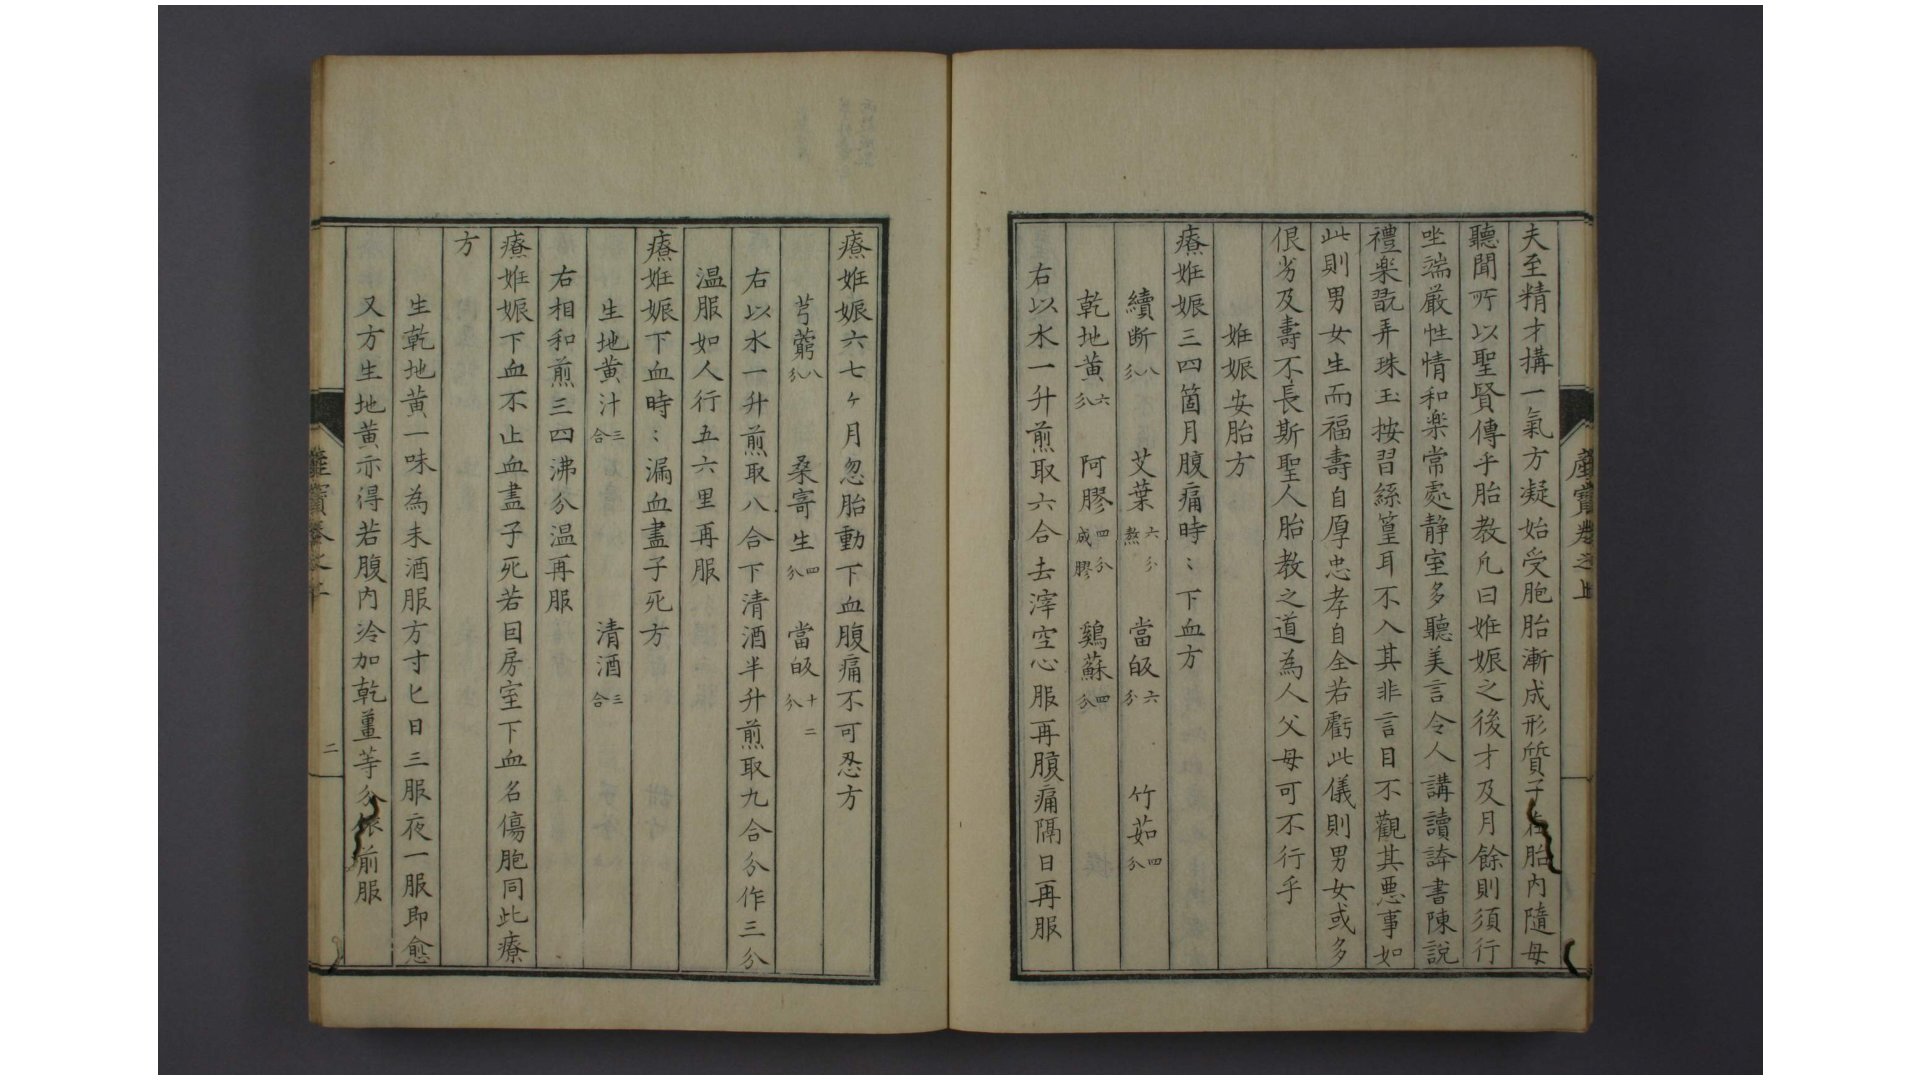 夫至精才搆一氣方凝始受胞胎漸成形質子在胎内隨母
聽聞所以聖賢傳乎胎教凡曰妊娠之後才及月餘則須行
坐端厳性情和楽常處静室多聽美言令人講讀詩書陳說
禮楽翫弄珠玉按習絲篁耳不入其非言目不觀其悪事如
此則男女生而福壽自厚忠孝自全若虧此儀則男女或多
佷劣及壽不長斯聖人胎教之道為人父母可不行乎
妊娠安胎方
療妊娠三四箇月腹痛時〻下血方
續断八分 艾葉六分熬 當皈六分 竹茹四分
乾地黄六分 阿膠四分成膠 鷄蘇四分
右以水一升煎取六合去滓空心服再腹痛隔日再服
産寳巻之上
療妊娠六七ヶ月忽胎動下血腹痛不可忍方
芎藭八分 桑寄生四分 當皈十二分
右以水一升煎取八合下清酒半升煎取九合分作三分
温服如人行五六里再服
療妊娠下血時〻漏血盡子死方
生地黄汁三合 清酒三合
右相和煎三四沸分温再服
療妊娠下血不止血盡子死若因房室下血名傷胞同此療
方
生乾地黄一味為末酒服方寸匕日三服夜一服即愈
又方生地黄示得若腹内冷加乾薑等分依前服
二